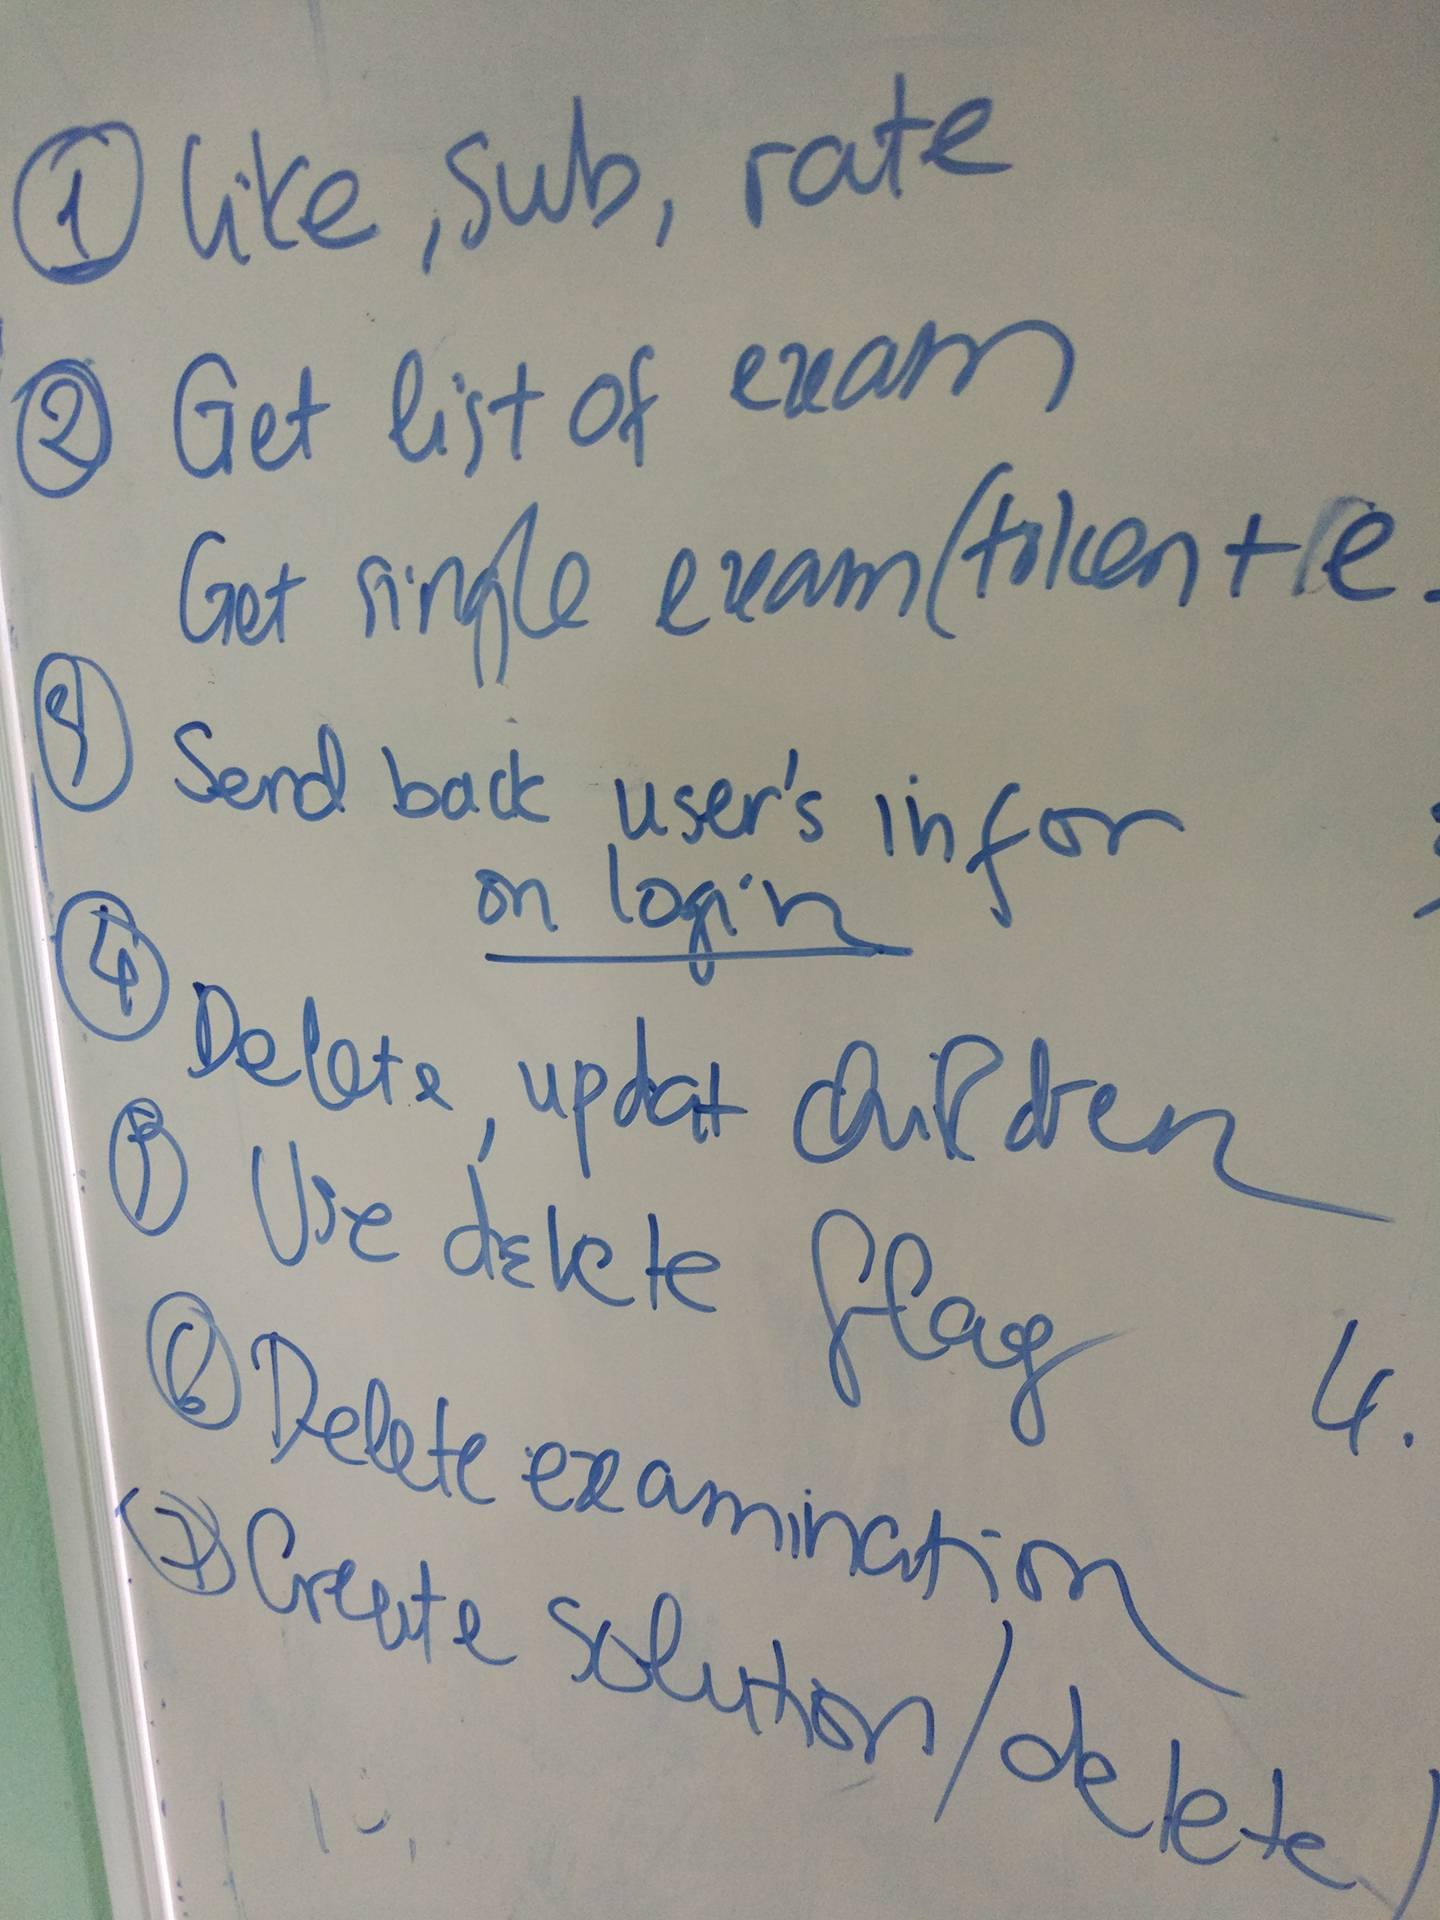 ① like, sub, rate
② Get list of exam
Get single exam (token + e
③ Send back user's infor
on login
④ Delete, updat children
⑤ Use delete flag
4.
⑥ Delete examination
⑦ Create solution / delete /